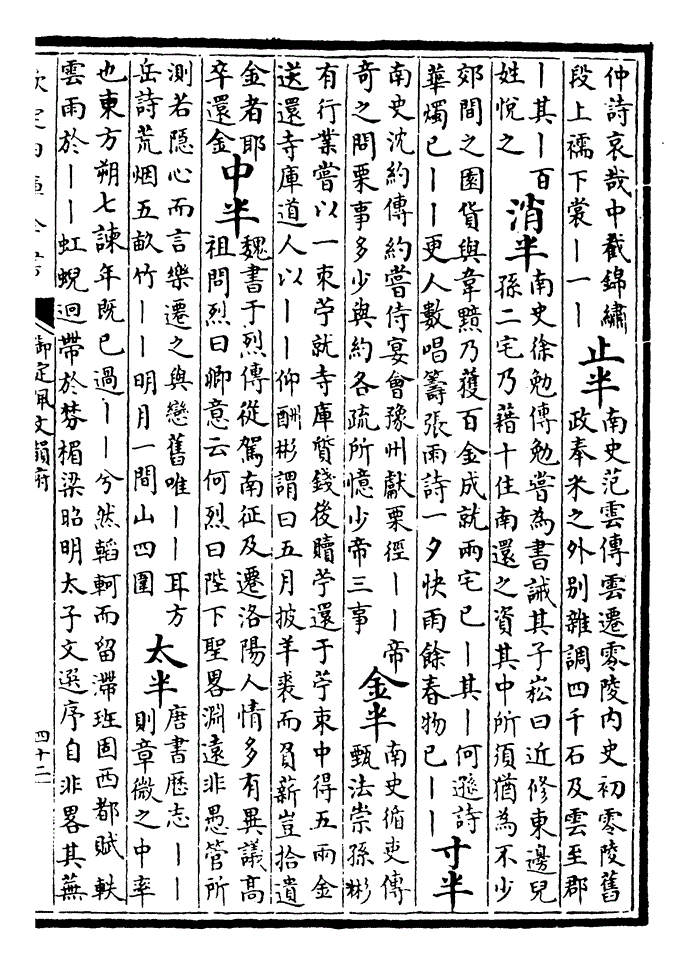 仲詩哀哉中截錦繡
段上襦下裳丨一丨
止半
南史范雲傳雲遷零陵内史初零陵舊
政奉米之外别雜調四千石及雲至郡
丨其丨百
姓悅之
消半
南史徐勉傳勉嘗為書誡其子崧曰近修東邊兒
孫二宅乃藉十住南還之資其中所須猶為不少
郊間之園貨與韋黯乃獲百金成就兩宅已丨其丨何遜詩
華燭已丨丨更人數唱籌張雨詩一夕快雨餘春物已丨丨
寸半
南史沈約傳約嘗侍宴會豫州獻栗徑丨丨帝
奇之問栗事多少與約各疏所憶少帝三事
金半
南史循吏傳
甄法崇孫彬
有行業嘗以一束苧就寺庫質錢後贖苧還于苧束中得五兩金
送還寺庫道人以丨丨仰酬彬謂曰五月披羊裘而負薪豈拾遺
金者耶
卒還金
中半
魏書于烈傳從駕南征及遷洛陽人情多有異議高
祖問烈曰卿意云何烈曰陛下聖畧淵遠非愚管所
測若隱心而言樂遷之與戀舊唯丨丨耳方
岳詩荒烟五畝竹丨丨明月一間山四圍
太半
唐書歴志丨丨
則章微之中率
也東方朔七諫年既已過丨丨兮然轗軻而留滯班固西都賦軼
雲雨於丨丨虹蜺迴帶於棼楣梁昭明太子文選序自非畧其蕪
欽定四庫全書
御定佩文韻府
四十二